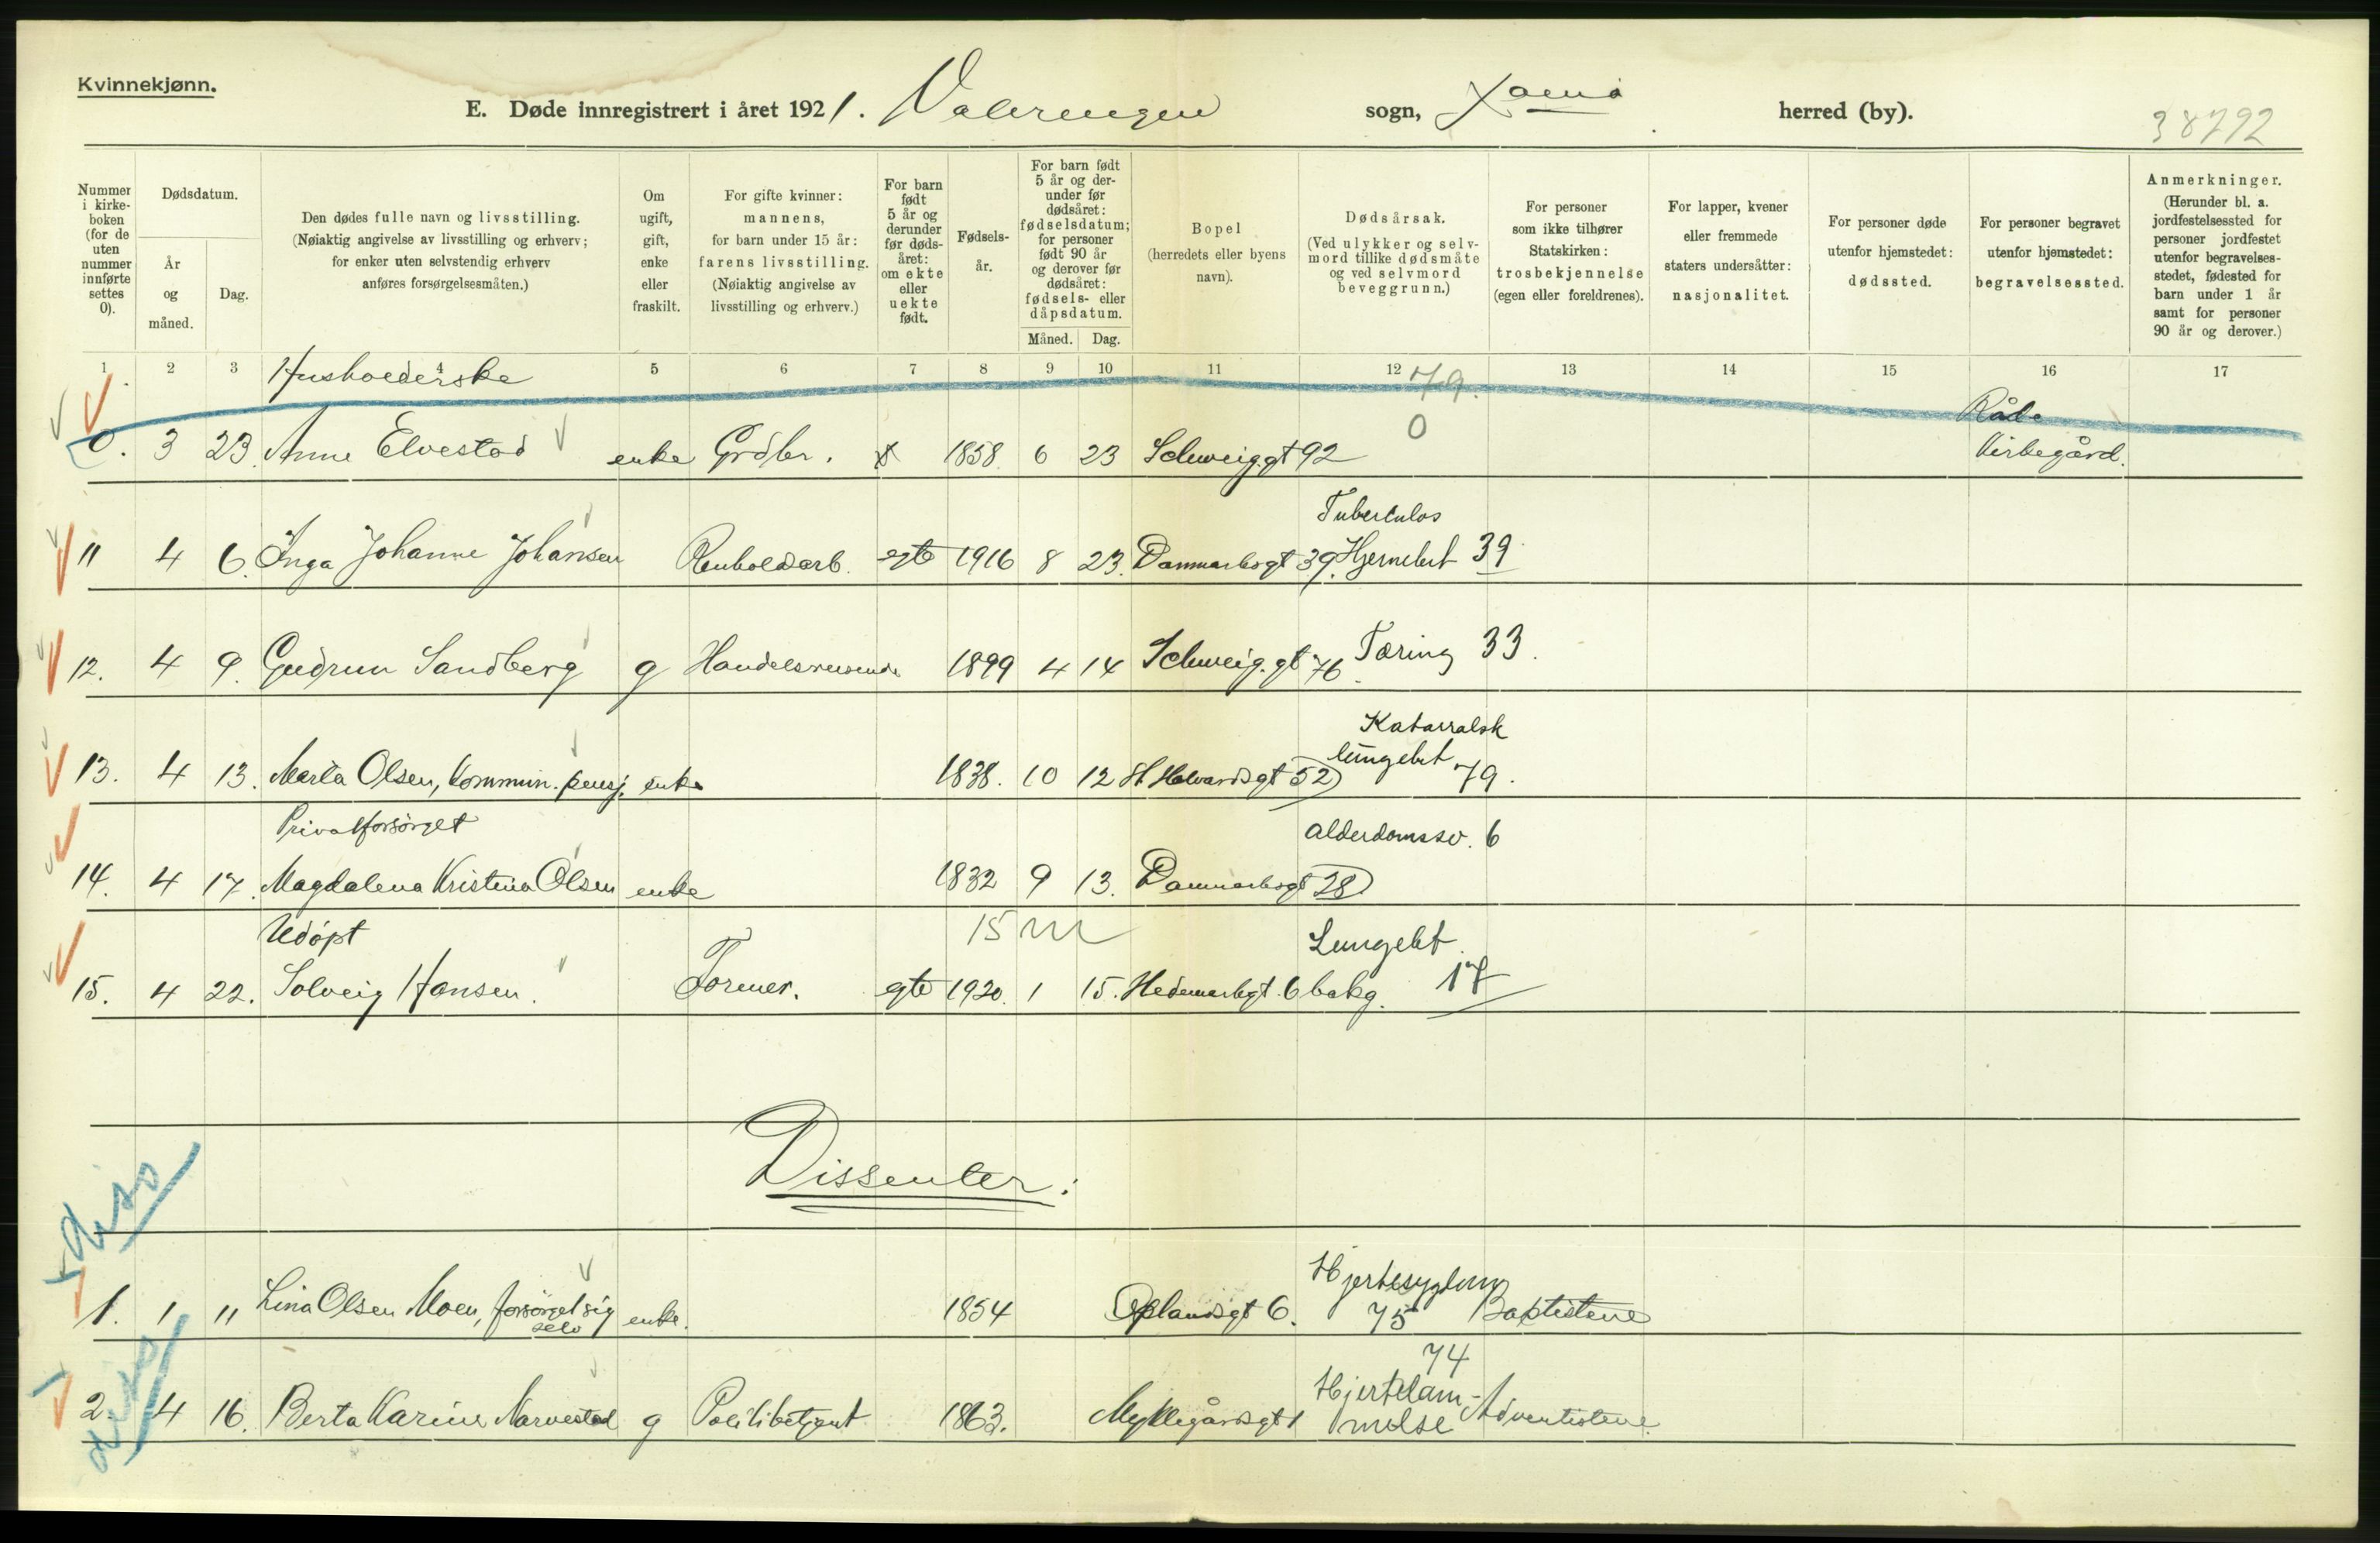 Kvinnekjønn.
E. Døde innregistrert i året 1921. Valerengen sogn, Xania herred (by). 38792
Nummer i kirke-boken (for de uten nummer innførte settes 0).
Dødsdatum.
År og måned.
Dag.
Den dødes fulle navn og livsstilling. (Nøiaktig angivelse av livsstilling og erhverv; for enker uten selvstendig erhverv anføres forsørgelsesmåten.)
Om ugift, gift, enke eller fraskilt.
For gifte kvinner: mannens, for barn under 15 år: farens livsstilling. (Nøiaktig angivelse av livsstilling og erhverv.)
For barn født 5 år og derunder før døds-året: om ekte eller uekte født.
Fødsels-år.
For barn født 5 år og der-under før dødsåret: fødselsdatum; for personer født 90 år og derover før dødsåret: fødsels- eller dåpsdatum.
Måned. Dag.
Bopel (herredets eller byens navn).
Dødsårsak. (Ved ulykker og selv-mord tillike dødsmåte og ved selvmord beveggrunn.)
For personer som ikke tilhører Statskirken: trosbekjennelse (egen eller foreldrenes).
For lapper, kvener eller fremmede staters undersåtter: nasjonalitet.
For personer døde utenfor hjemstedet: dødssted.
For personer begravet utenfor hjemstedet: begravelsessted.
Anmerkninger. (Herunder bl. a. jordfestelsessted for personer jordfestet utenfor begravelses-stedet, fødested for barn under 1 år samt for personer 90 år og derover.)
1 2 3 4 5 6 7 8 9 10 11 12 13 14 15 16 17
Husholderske 79 Råde
0. 3 23. Anne Elvestad enke Grdbr. 1858 6 23 Schweig.gt 92 0 Kirkegård.
Tuberkulos
11 4 6. Inga Johanne Johansen Renholdsarb. egte 1916 8 23. Danmarksgt 39. Hjernebet 39
12. 4 9. Gudrun Sandberg g Handelsreisende 1899 4 14 Schweig.gt 76. Tæring 33.
Katarralsk
13. 4 13. Marta Olsen, Kommun. pensj. enke 1838. 10 12 St Halvardsgt 52 lungebet 79.
Privatforsørget alderdomssv. 6
14. 4 17. Magdalena Kristena Olsen enke 1832 9 13. Danmarksgt 28
Udøpt 15 m Lungebet.
15. 4 22. Solveig Hansen. Former. egte 1920. 1 15. Hedemarkgt. 6 bakg. 17
Dissenter:
diss
Hjertesygdom
1. 1 11 Lina Olsen Moen, forsørget sig selv enke. 1854 Oplandsgt 6. 75 Baptistene
diss
74
2. 4 16. Berta Karine Narvestad g Politibetjent 1863. Myklegårdsgt 1 Hjertelam-melse Adventistene.